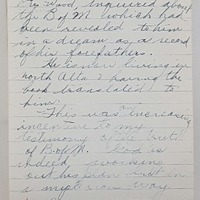 wood, inquired about
the B of M which had
been revealed to him
in a dream as a record
of his forefathers.
He is now living in
north Alta & having the
book translated to
him.
This was an increasing
incentive to my
testimony of the truth
of B of M. God is
indeed working
out his plan in
a mysterious way